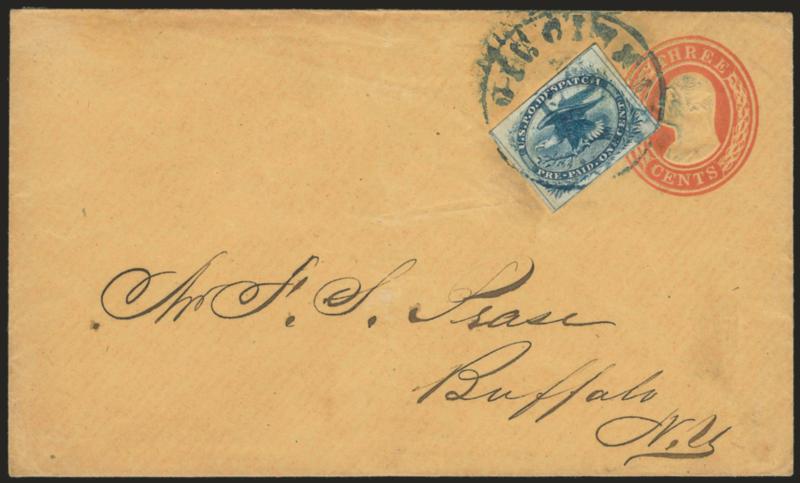 THREE
CENTS
U.S.P.O. DESPATCH
PRE-PAID. ONE CENT.
Mr F. S.
Buffalo
N.Y